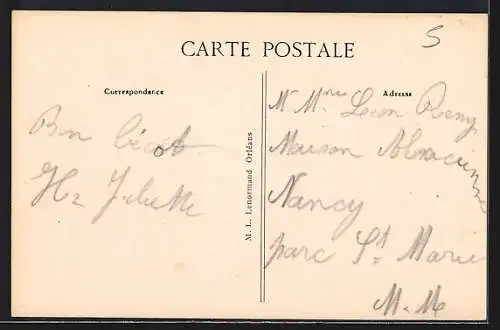 CARTE POSTALE
5
Correspondance
Bon
H. Juliette
M. L. Lenormand Orléans
Adresse
Mr Mme Leon Remy
Maison
Nancy
parc St Marie
M.-M